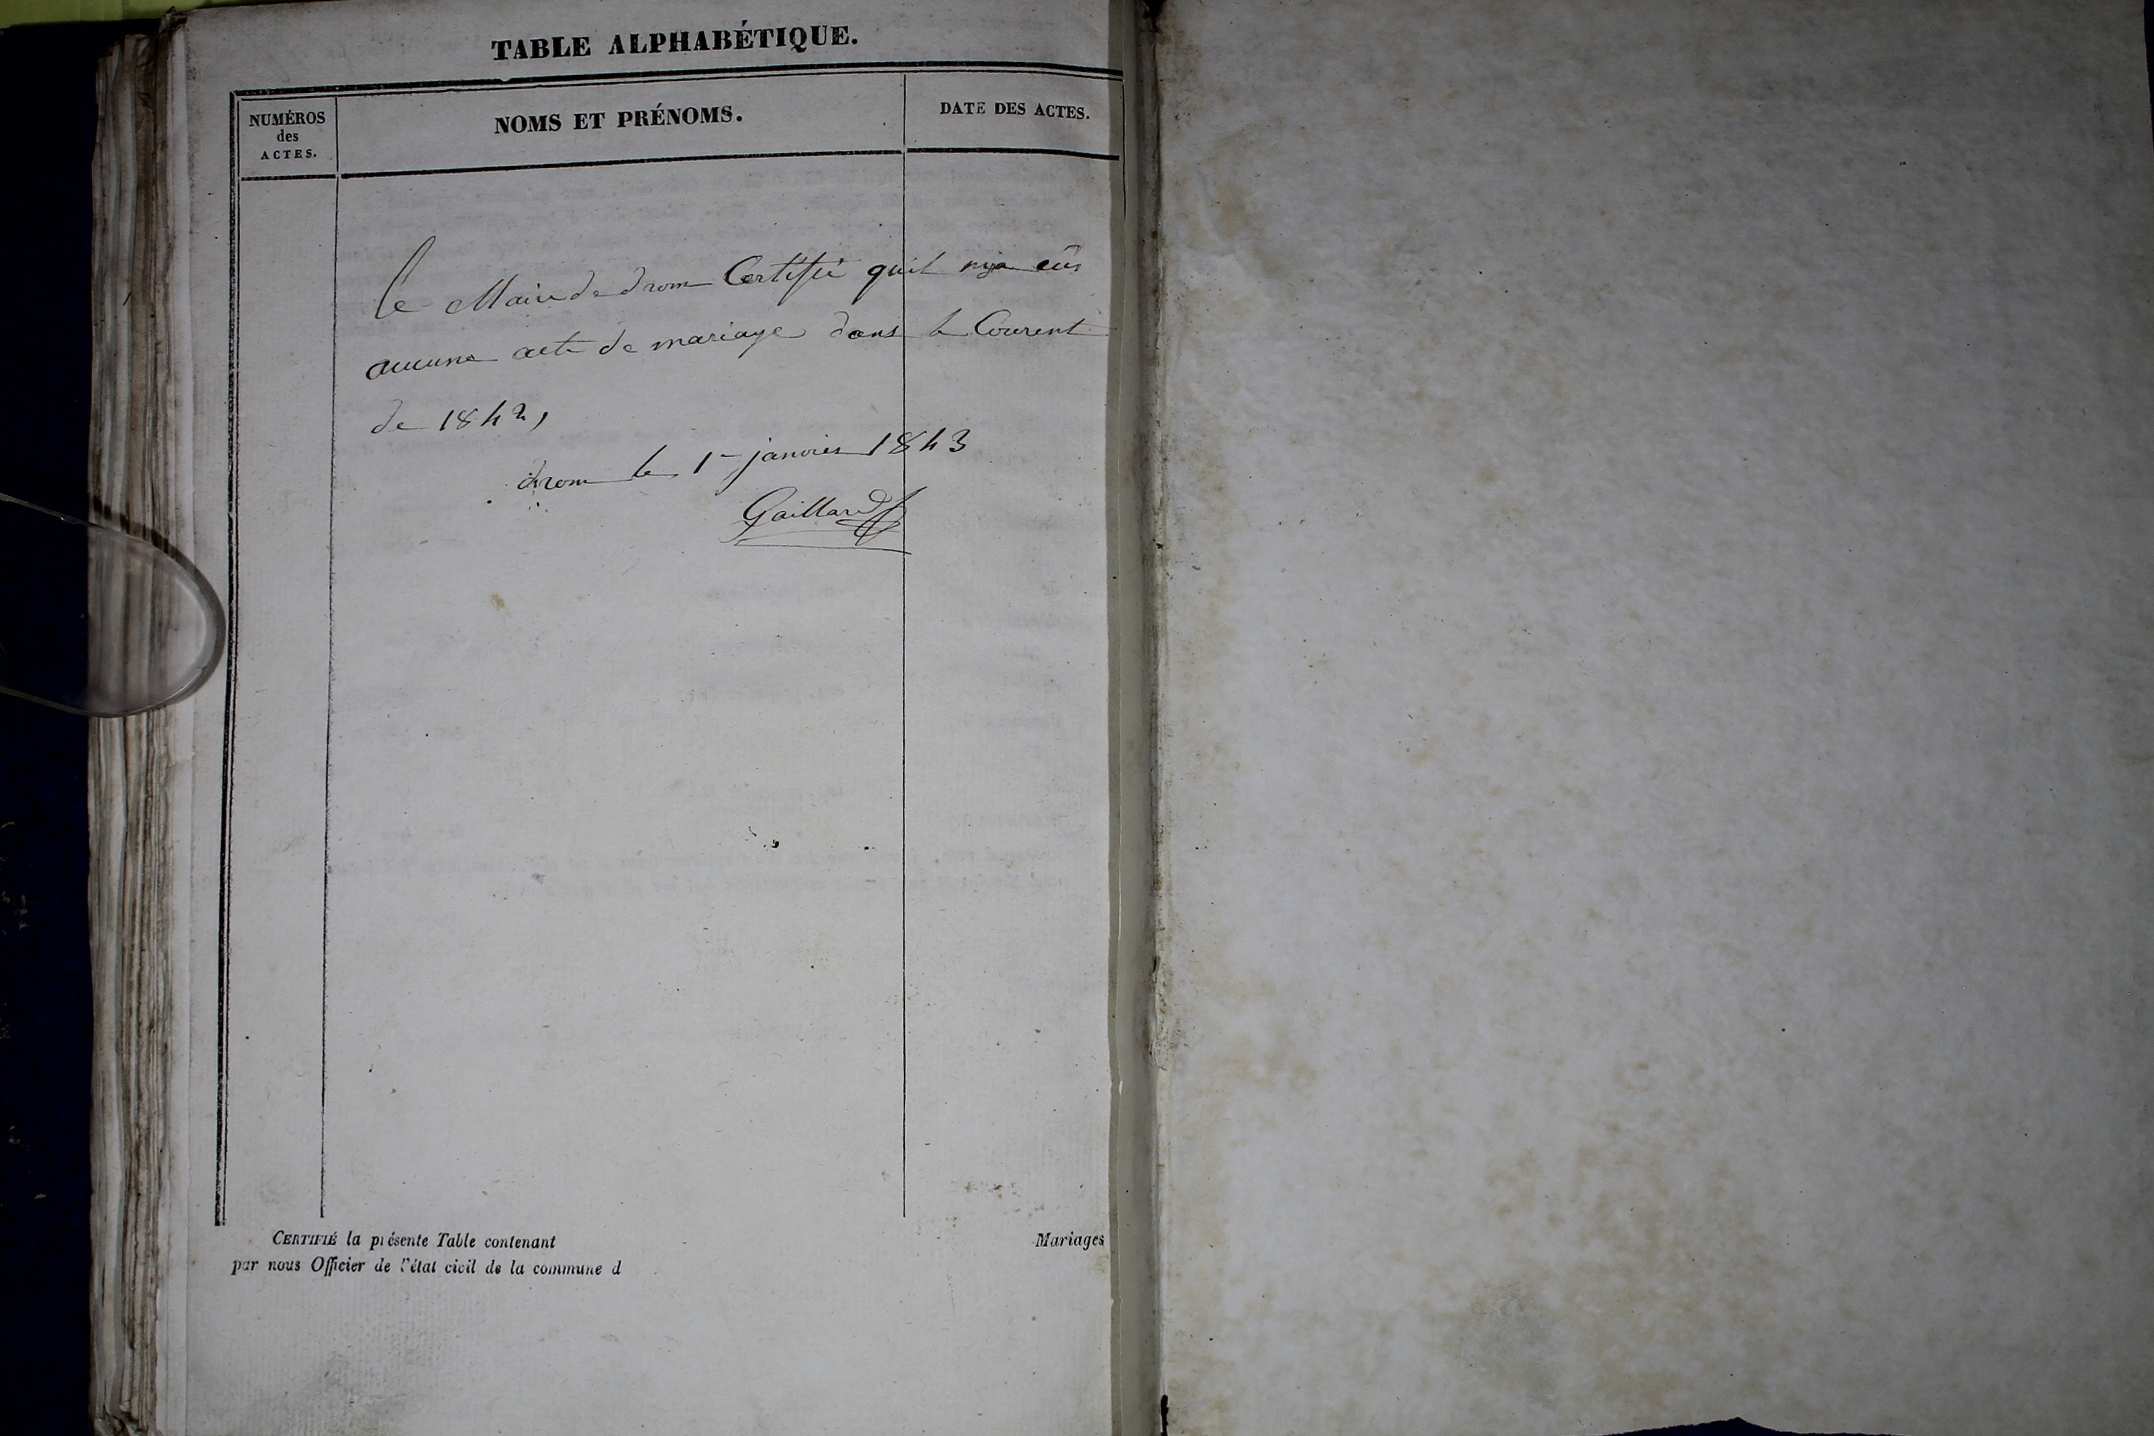 TABLE ALPHABÉTIQUE.
NUMÉROS
des
ACTES.
NOMS ET PRÉNOMS.
DATE DES ACTES.
le Maire de drom Certifie quil nya eûs
aucune acte de mariage dans le Courent
de 1842,
drom le 1er janvier 1843
Gaillard
CERTIFIÉ la présente Table contenant Mariages
par nous Officier de l'état civil de la commune d